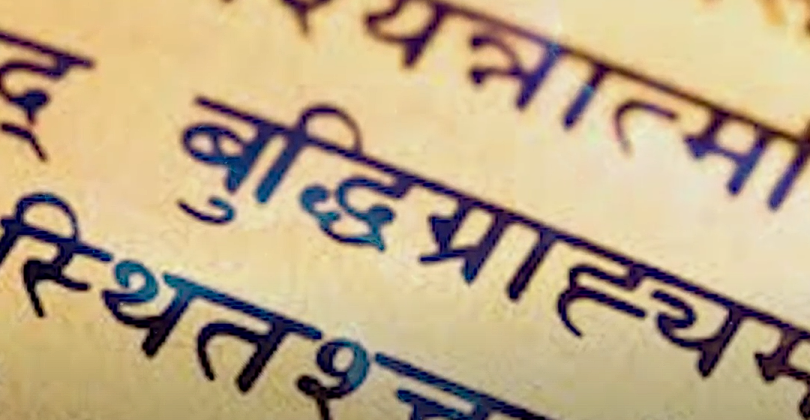 श्यन्नात्मा
द् बुद्धिग्राह्यम
स्थितश्च